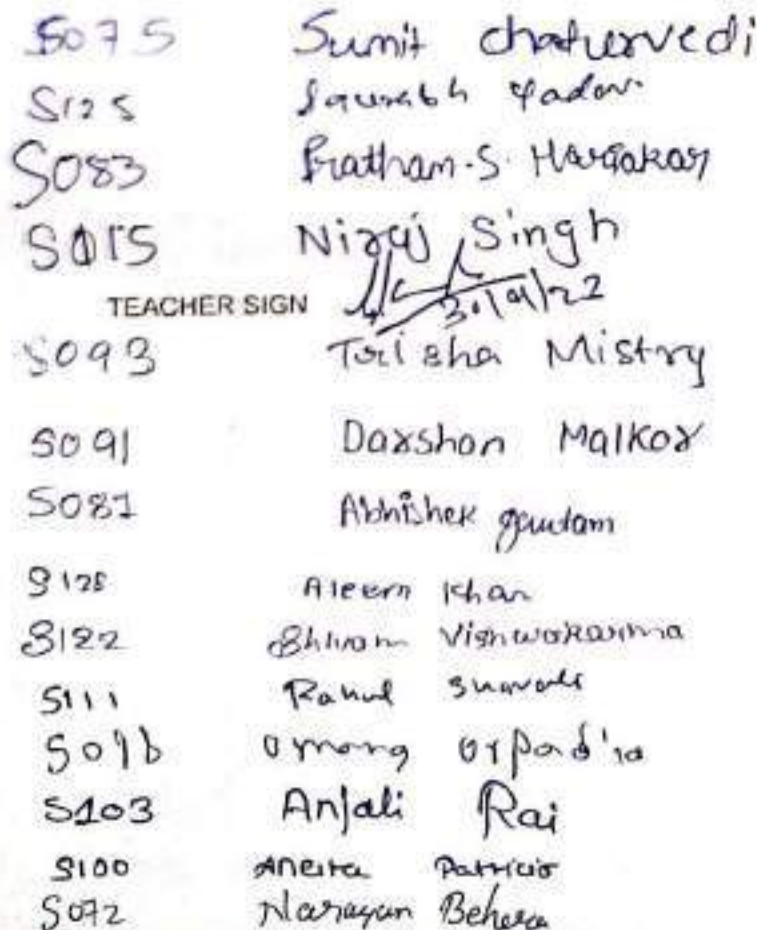 S075 Sumit chaturvedi
S125 Saurabh Yadav
S083 Pratham.S. Hargakar
S015 Niraj Singh
TEACHER SIGN 30/9/22
S093 Trisha Mistry
S091 Darshan Malkar
S081 Abhishek gautam
S128 Aleem Khan
S122 Shivam Vishwakarma
S111 Rahul
Omang
S103 Anjali Rai
S100 Patricio
S072 Narayan Behera